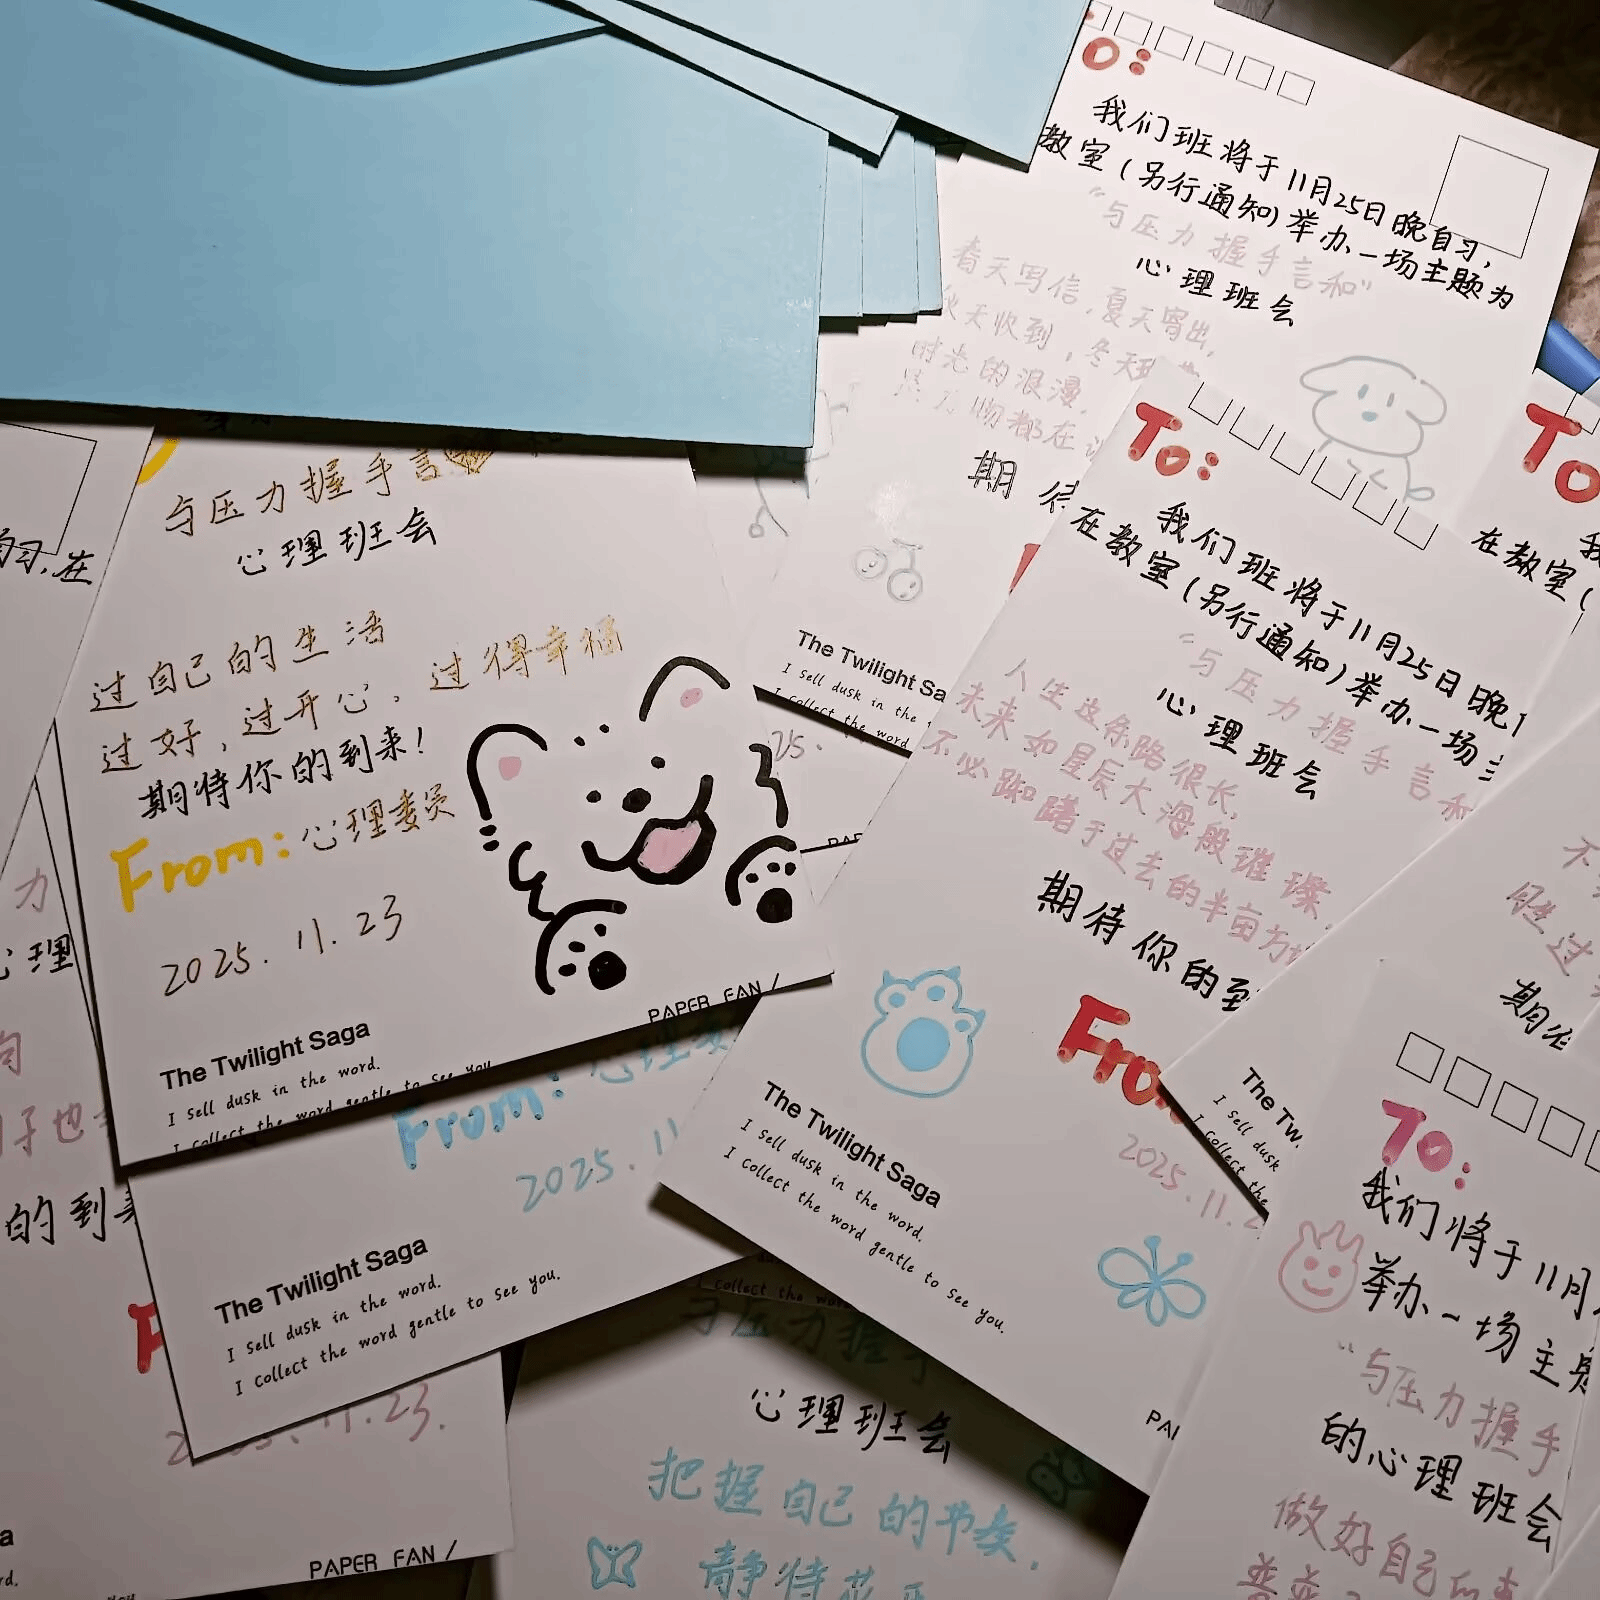 我们班将于11月25日晚自习,
教室(另行通知)举办一场主题为
“与压力握手言和”
心理班会
春天写信,夏天寄出,
秋天收到,冬天
时光的浪漫,
物都在
期待
The Twilight Sa
I sell dusk in the
I collect the word
与压力握手言
心理班会
过自己的生活
过好,过开心,过得幸福
期待你的到来!
From:心理委员
2025.11.23
PAPER FAN /
The Twilight Saga
I sell dusk in the word.
I collect the word gentle to see you
习,在
To:
我们班将于11月25日晚
在教室(另行通知)举办一场
“与压力握手言和
心理班会
人生这条路很长,
未来如星辰大海般璀璨,
不必踟躇于过去的半亩方
期待你的到
From
2025.11.2
The Twilight Saga
I sell dusk in the word.
I collect the word gentle to see you.
PA
To
在教室(
不
期待
The Tw
I sell dusk
I collect the
To:
我们将于11月
举办一场主题
“与压力握手
的心理班会
做好自己
力
心理
的到
From:心理委
2025.11
The Twilight Saga
I sell dusk in the word.
I collect the word gentle to see you.
11.23.
PAPER FAN /
与压力握手
心理班会
把握自己的节奏,
静待花开